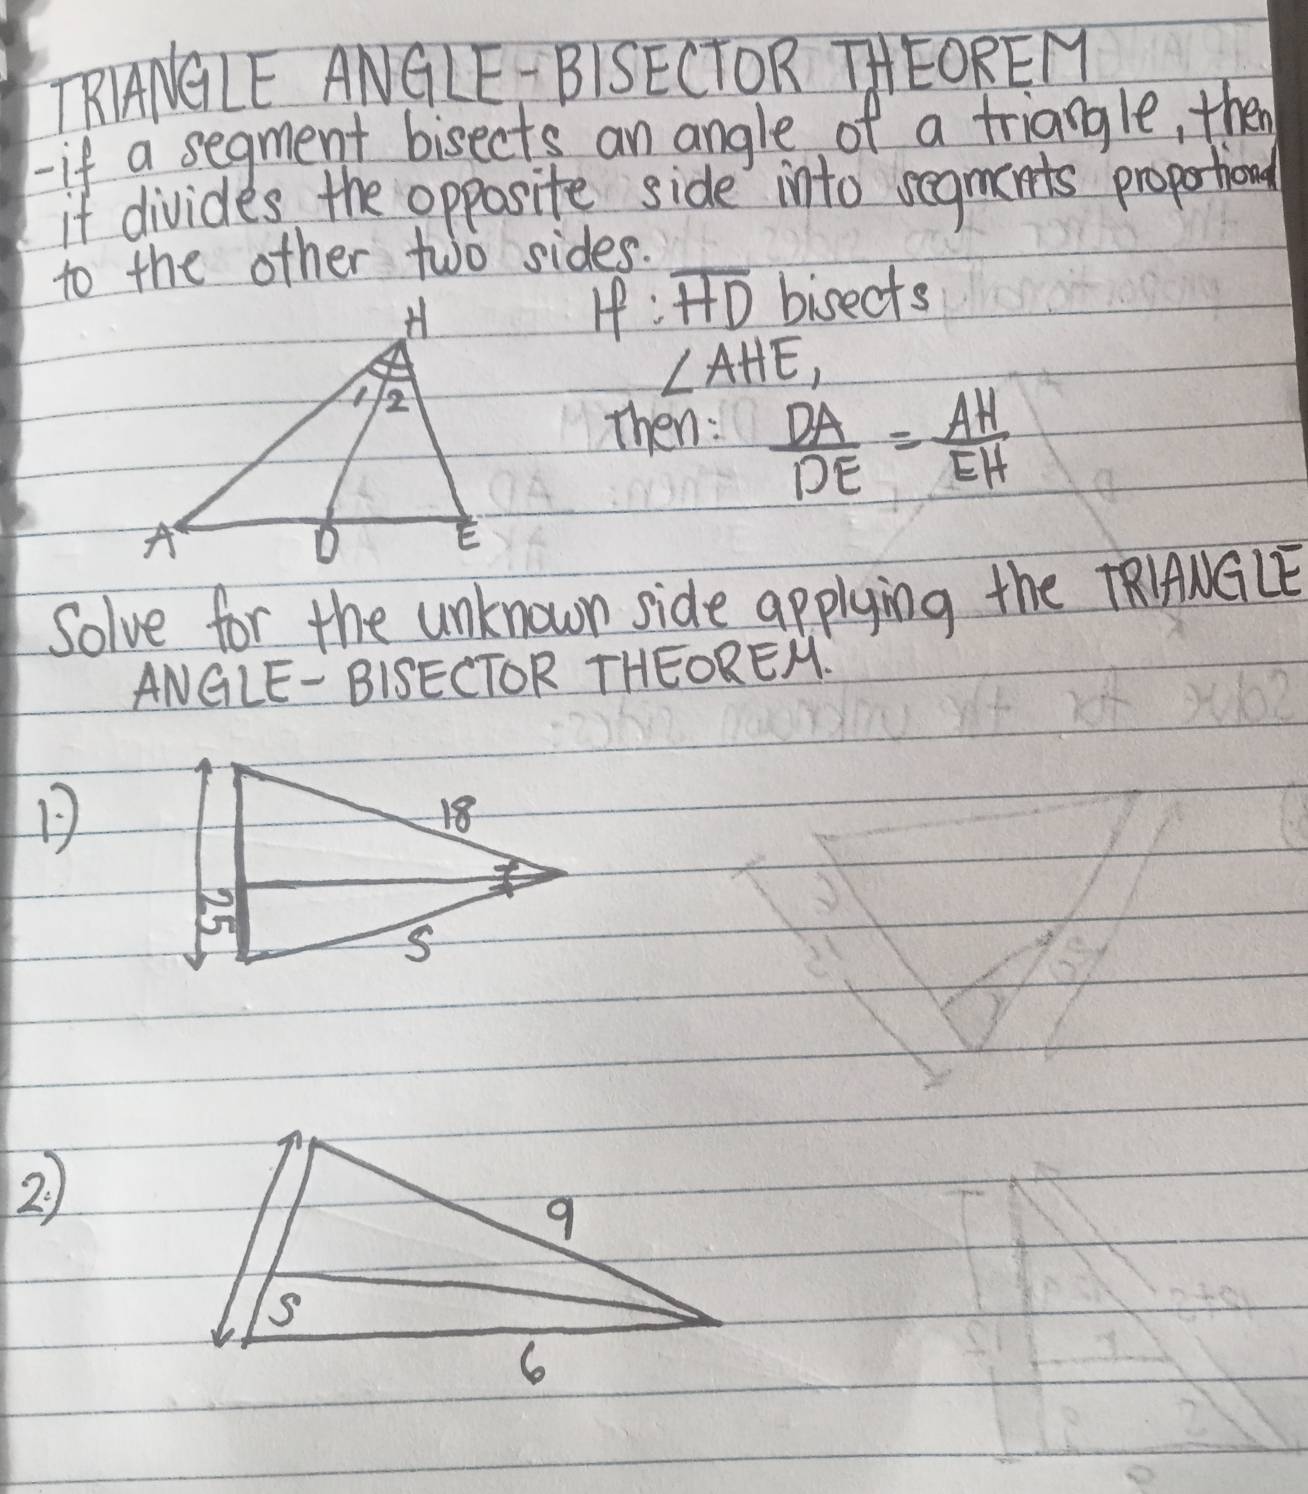 TRIANGLE ANGLE-BISECTOR THEOREM
-if a segment bisects an angle of a triangle, then
it divides the opposite side into segments proportional
to the other two sides.
H
If: HD bisects
∠AHE,
1 2
Then: DA/DE = AH/EH
A D E
Solve for the unknown side applying the TRIANGLE
ANGLE-BISECTOR THEOREM.
1.)
18
25
S
2.)
9
S
6